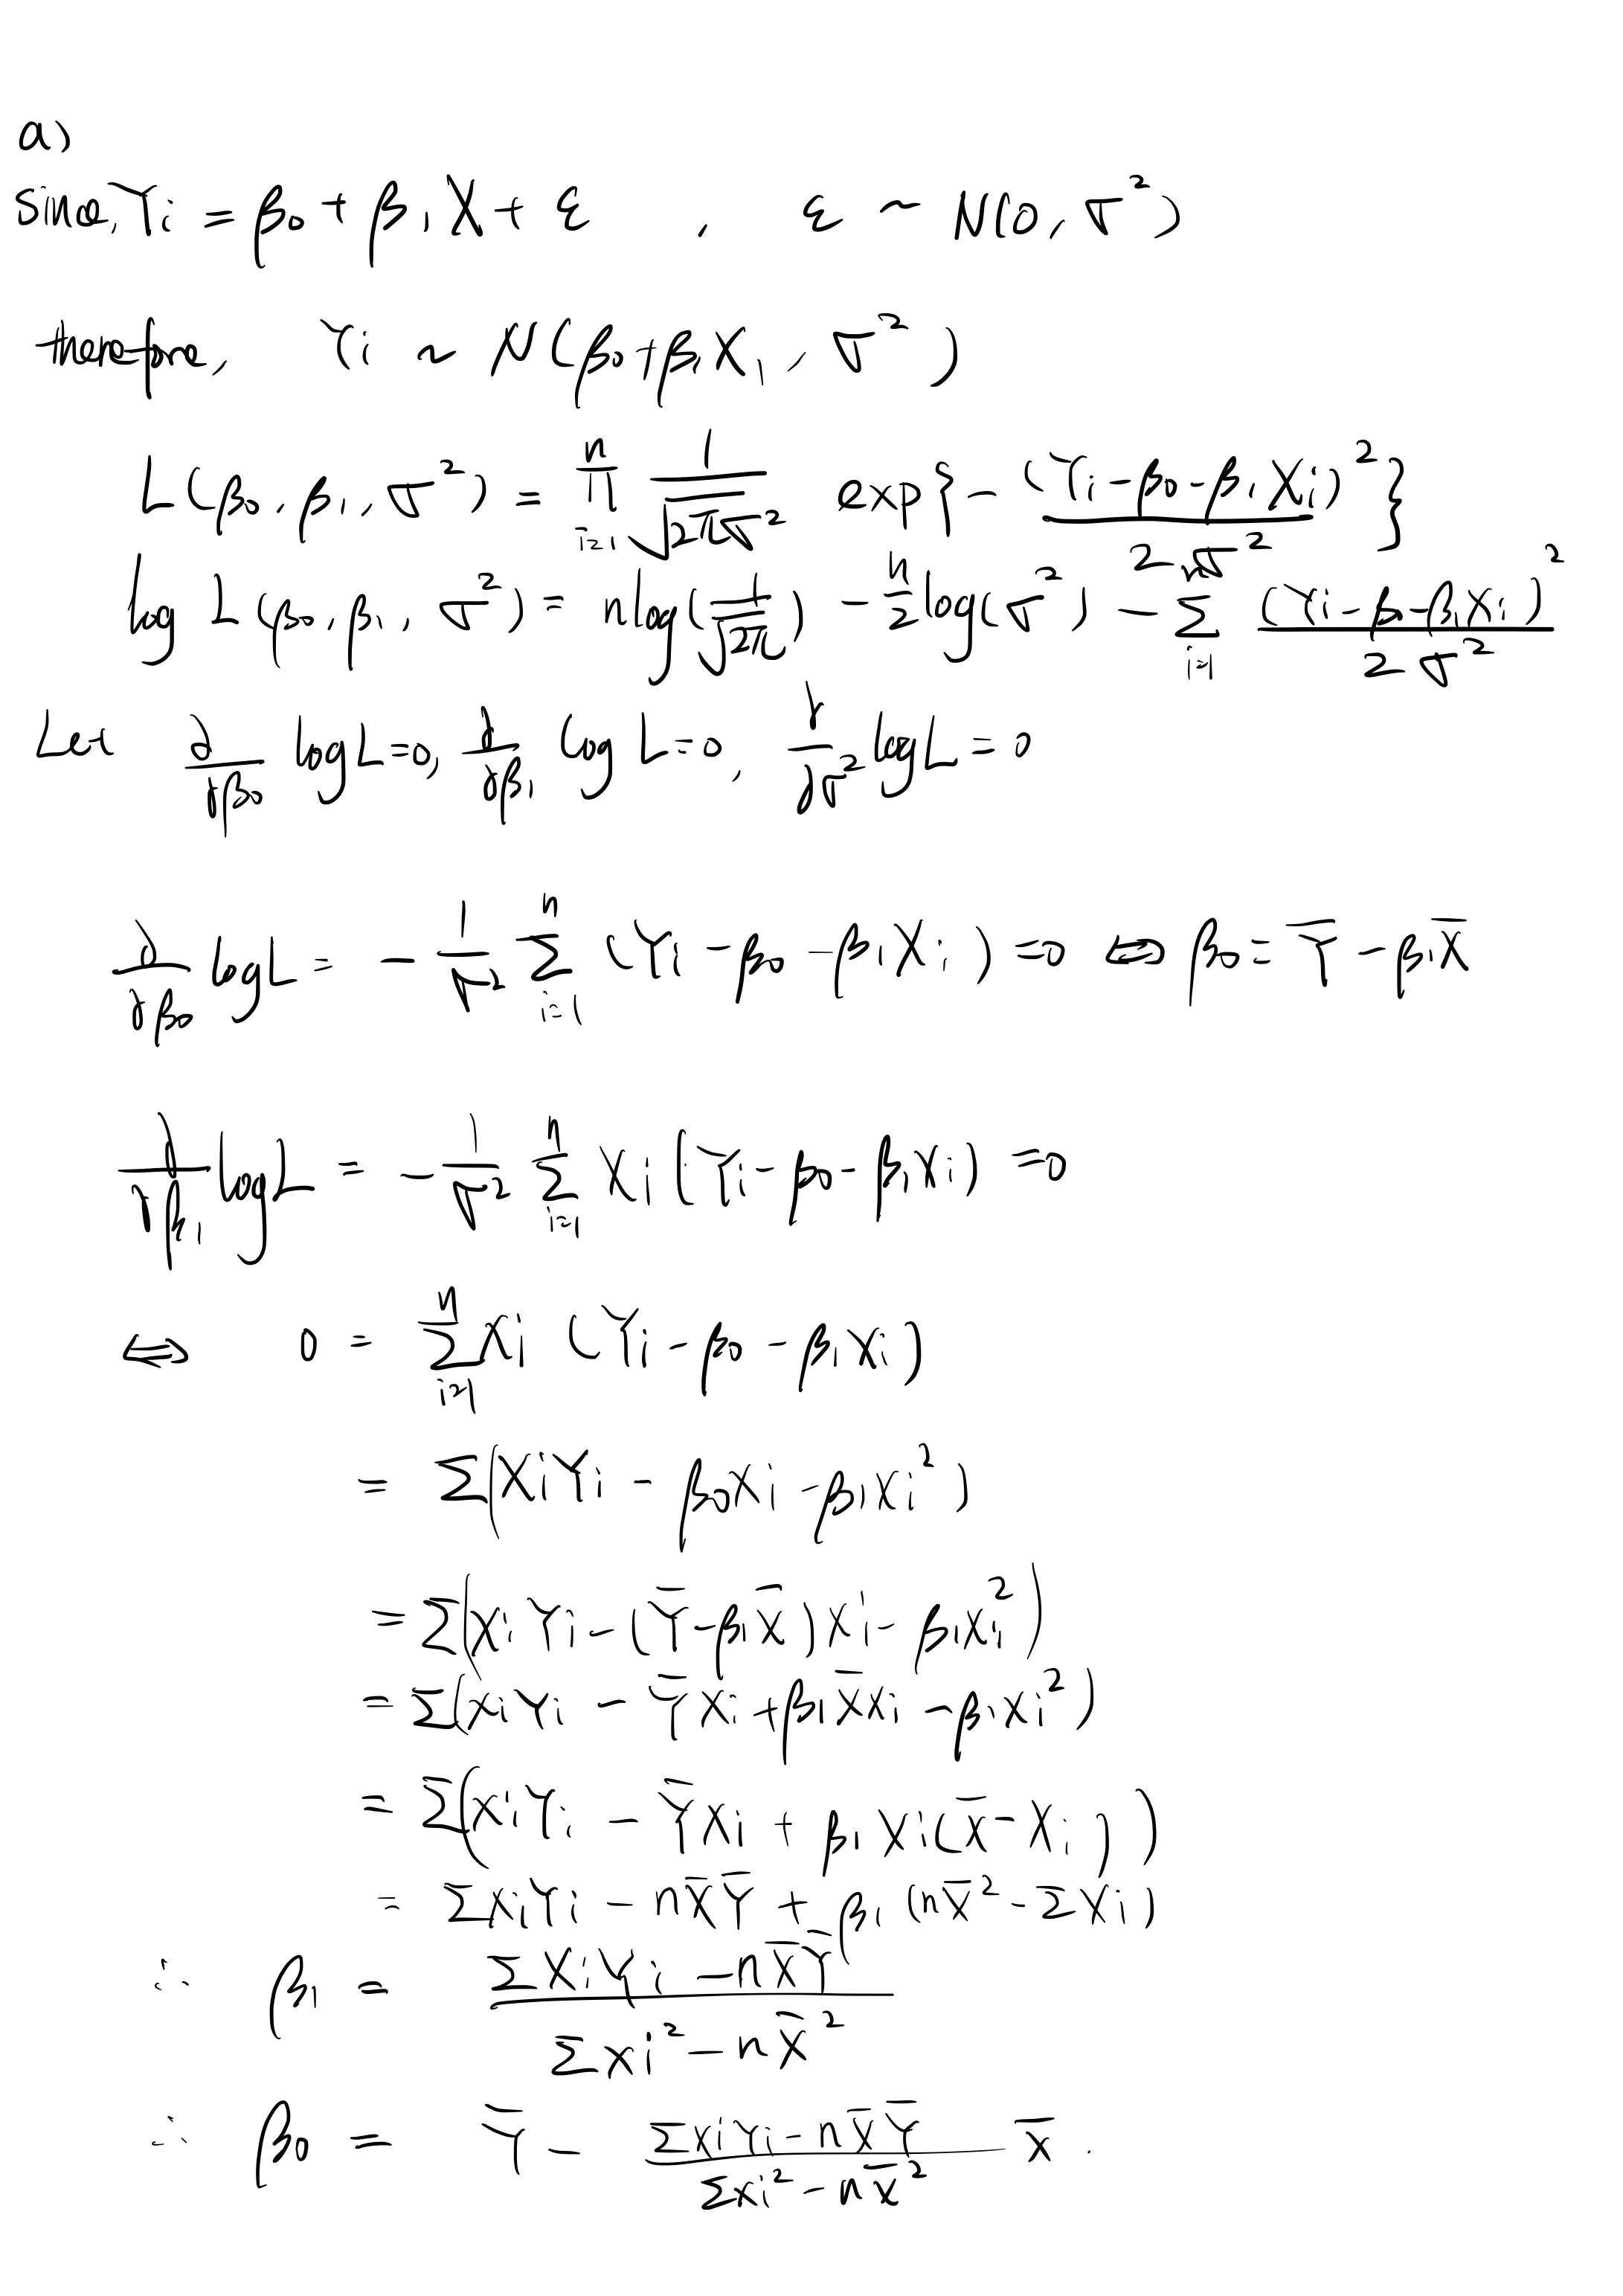 a)
Since, Yi = β0 + β1 X + ε , ε ~ N(0, σ²)
therefore, Yi ~ N(β0+β1 X1, σ²)
L(β0, β1, σ²) = ∏_{i=1}^{n} 1/√(2πσ²) exp{ - (Yi - β0 - β1 Xi)² / 2σ² }
log L(β0, β1, σ²) = n log(1/√(2π)) - n/2 log(σ²) - ∑_{i=1}^{n} (Yi - β0 - β1 Xi)² / 2σ²
Let ∂/∂β0 log L = 0, ∂/∂β1 log L = 0, ∂/∂σ² log L = 0
∂/∂β0 log L = - 1/σ² ∑_{i=1}^{n} (Yi - β0 - β1 Xi) = 0 ⇔ β0 = Ȳ - β1 X̄
∂/∂β1 log L = - 1/σ² ∑_{i=1}^{n} Xi (Yi - β0 - β1 Xi) = 0
⇔ 0 = ∑_{i=1}^{n} Xi (Yi - β0 - β1 Xi)
= ∑(XiYi - β0Xi - β1Xi²)
= ∑(XiYi - (Ȳ - β1X̄)Xi - β1Xi²)
= ∑(XiYi - ȲXi + β1X̄Xi - β1Xi²)
= ∑(XiYi - ȲXi + β1 Xi(X̄ - Xi))
= ∑XiYi - nX̄Ȳ + β1 (nX̄² - ∑Xi)
∴ β1 = (∑XiYi - nX̄Ȳ) / (∑Xi² - nX̄²)
∴ β0 = Ȳ - (∑XiYi - nX̄Ȳ) / (∑Xi² - nX̄²) X̄ .